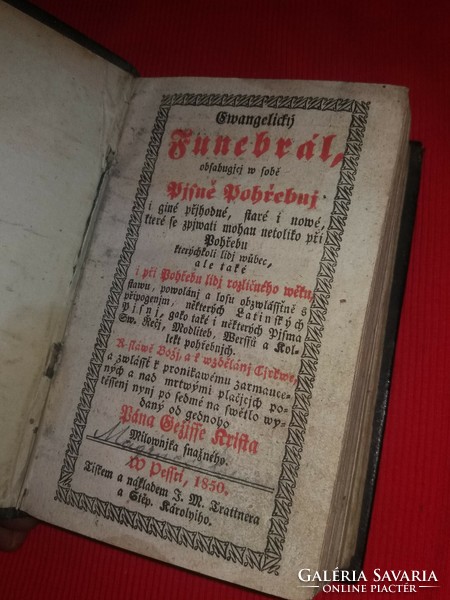 Ewangelický
Funebrál,
obsahugjcý w sobě
Pjsně Pohřebnj
i giné přjhodné, staré i nowé,
které se zpjwati mohau netoliko při
Pohřebu
kterýchkoli lidj wůbec,
ale také
i při Pohřebu lidj rozličného wěku,
stawu, powolánj a losu obzwlásstně s
připogenjm některých Latinských
Pjsnj, gako také i některých Pjsma
Sw. Řečj, Modliteb, Werssů a Kol-
lekt pohřebných.
K sláwě Božj, a k wzdělánj Cýrkwe,
a zwlásstě k pronikawému zarmauce-
ných a nad mrtwými plačjcých po-
těssenj nynj po sedmé na swětlo wy-
daný od gednoho
Pána Gežjsse Krista
Milownjka snažného.
W Pessti, 1850.
Tiskem a nákladem J. M. Trattnera
a Stěp. Károlyiho.
GALÉRIA SAVARIA
ONLINE PIACTÉR